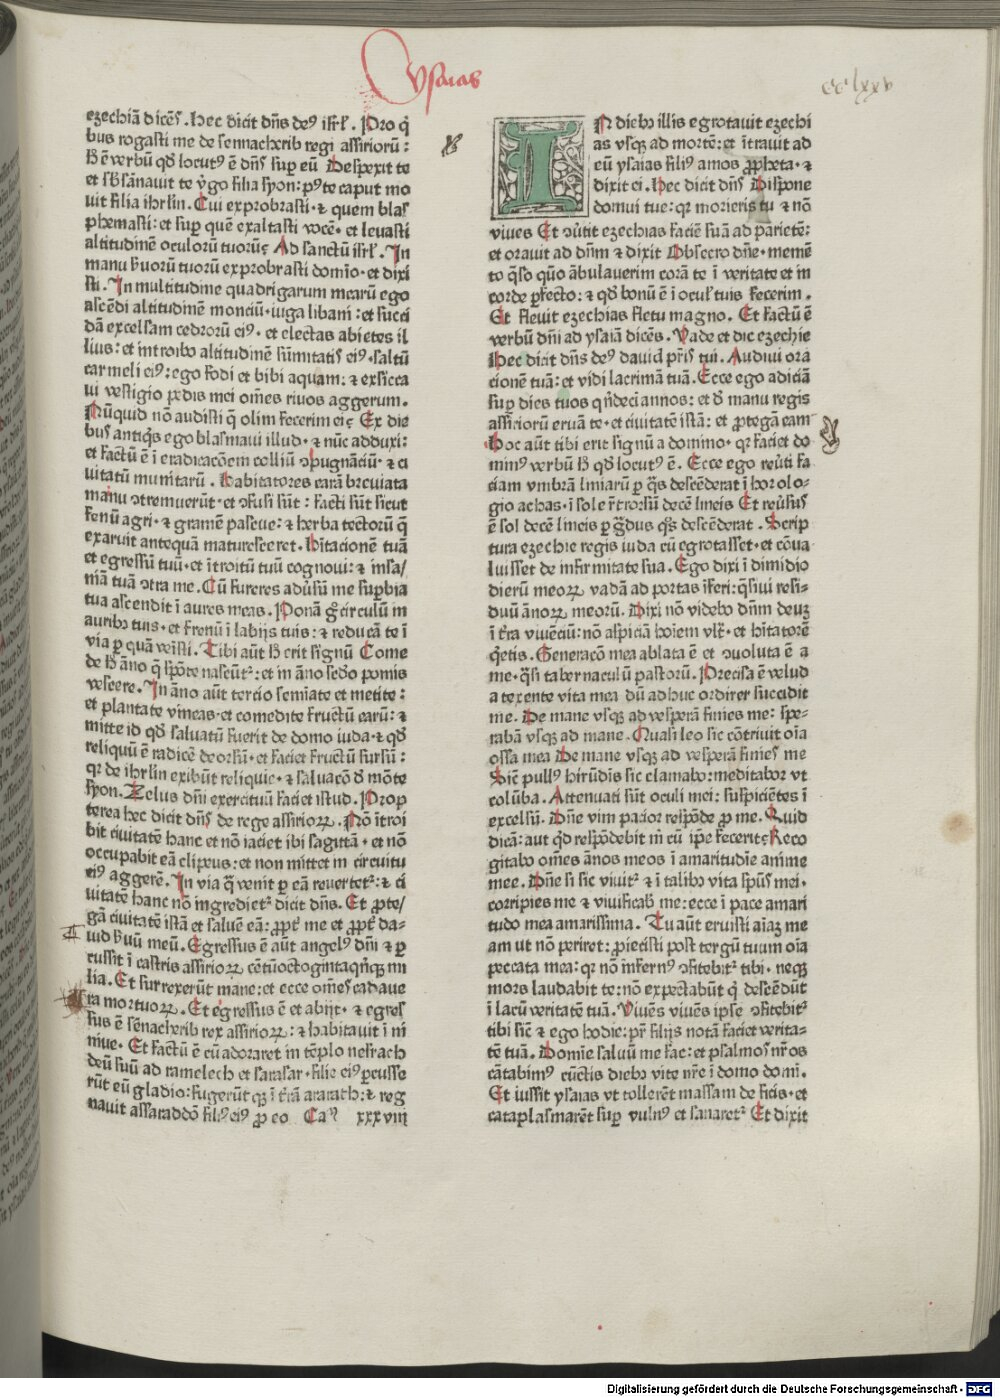 ysaias
cclxxv
ezechiā dicēs. Hec dicit dn̄s deꝰ iſrl̄. Pro q̄
bus rogaſti me de ſennacherib regi aſſiriorū:
h̄ ē verbū qd̄ locutꝰ ē dn̄s ſup eū Deſpexit te
et ſb̄ſānauit te v̓go filia ſyon: pꝰ te caput mo
uit filia ihrl̄m. Cui exprobraſti·⁊ quem blaſ
phemaſti: et ſup quē exaltaſti vocē·et leuaſti
altitudinē oculorū tuorū? Ad ſanctū iſrl̄. In
manu ſ̓uorū tuorū exprobraſti domīo·et dixi
ſti. In multitudine quadrigarum mearū ego
aſcēdi altitudinē monciū·iuga libani: et ſucci
dā excelſam cedrorū eiꝰ·et electas abietes il
lius: et introibo altitudinē ſūmitatis eiꝰ·ſaltū
carmeli eiꝰ: ego fodi et bibi aquam: ⁊ exſicca
ui veſtigio pedis mei om̄es riuos aggerum.
Nūquid nō audiſti q̄ olim fecerim ei? Ex die
bus antiq̄s ego plaſmaui illud·⁊ nūc adduxi:
et factū ē ī eradicacōem colliū ꝯpugnāciū·⁊ ci
uitatū munitarū. Habitatores earū breuiata
manu ꝯtremuerūt·et ꝯfuſi ſūt: facti ſūt ſicut
fenū agri·⁊ gramē paſcue: ⁊ herba tectorū q̄
exaruit antequā matureſceret. Hītacionē tuā
et egreſſū tuū·et ītroitū tuū cognoui: ⁊ inſa/
niā tuā ꝯtra me. Cū fureres adūſū me ſuꝑbia
tua aſcendit ī aures meas. Ponā g̊ circulū in
aurib3 tuis·et frenū ī labijs tuis: ⁊ reducā te ī
via ꝑ quā veīſti. Tibi aūt h̄ erit ſignū Come
de h̄ āno q̄ ſpōte naſcūtᷣ: et in āno ſcd̄o pomis
veſcere. In āno aūt tercio ſemīate et metite:
et plantate vineas·et comedite fructū earū: ⁊
mittet id qd̄ ſaluatū fuerit de domo iuda·⁊ qd̄
reliquū ē radicē deorſū·et faciet fructū ſurſū:
qr de ihrl̄m exibūt reliquie·⁊ ſaluacō d̓ mōte
ſyon. Zelus dn̄i exercituū faciet iſtud. Prop
terea hec dicit dn̄s de rege aſſirioꝝ. Nō ītroi
bit ciuitatē hanc et nō iaciet ibi ſagittā·et nō
occupabit eā clipeus: et non mittet in circuitu
eiꝰ aggerē. In via q̄ venit ꝑ eā reuertetᷣ: ⁊ ci
uitatē hanc nō ingredietᷣ dicit dn̄s. Et ꝓte/
gā ciuitatē iſtā et ſaluē eā: ꝓpt̓ me et ꝓpt̓ da-
uid ſ̓uū meū. Egreſſus ē aūt angelꝰ dn̄i ⁊ ꝑ
cuſſit ī caſtris aſſirioꝝ cētūoctogintaqn̄q3 mi
lia. Et ſurrexerūt mane: et ecce om̄es cadaue
ra mortuoꝝ. Et egreſſus ē et abijt·⁊ egreſ
ſus ē ſēnacherib rex aſſirioꝝ: ⁊ habitauit ī ni
niue. Et factū ē cū adoraret in tēplo neſrach
deū ſuū ad ramelech et ſaraſar·filie eiꝰ ꝑcuſſe
rūt eū gladio: fugerūt q3 ī trā ararath: ⁊ reg
nauit aſſaraddō filiꝰ eiꝰ ꝓ eo Ca᷑ xxxviij
IN dieb3 illis egrotauit ezechi
as vſq3 ad mortē: et ītrauit ad
eū yſaias filiꝰ amos ꝓpheta·⁊
dixit ei. Hec dicit dn̄s Diſpone
domui tue: qr morieris tu ⁊ nō
viues Et ꝯūtit ezechias faciē ſuā ad parietē:
et orauit ad dn̄m ⁊ dixit Obſecro dn̄e·memē
to q̄ſo quō ābulauerim corā te ī veritate et in
corde ꝑfecto: ⁊ qd̄ bonū ē ī ocul̓ tuis fecerim.
Et fleuit ezechias fletu magno. Et factū ē
verbū dn̄i ad yſaiā dicēs. Vade et dic ezechie
Hec dicit dn̄s deꝰ dauid pr̄is tui. Audiui ora
cionē tuā: et vidi lacrimā tuā. Ecce ego adiciā
ſuꝑ dies tuos qn̄deci annos: et d̓ manu regis
aſſiriorū eruā te·et ciuitatē iſtā: et ꝓtegā eam
Hoc aūt tibi erit ſignū a domino·qr faciet do
minꝰ verbū h̄ qd̄ locutꝰ ē. Ecce ego reūti fa
ciam vmbrā lmiarū ꝑ q̄s deſcēderat ī horolo-
gio achas·ī ſole rͭrorſū decē lineis Et reūſus
ē ſol decē lineis ꝑ g̓dus q̄s deſcēderat. Scrip
tura ezechie regis iuda cū egrotaſſet·et cōua
luiſſet de infirmitate ſua. Ego dixi ī dimidio
dierū meoꝝ vadā ad portas īferi: q̄ſiui reſi-
duū ānoꝝ meorū. Dixi nō videbo dn̄m deum
ī tr̄a viuēciū: nō aſpiciā hoīem vlt̓·et hītatorē
q̓etis. Generacō mea ablata ē et ꝯuoluta ē a
me·q̄ſi tabernaculū paſtorū. Preciſa ē velud
a texente vita mea dū adhuc ordirer ſuccidit
me. De mane vſq3 ad veſperā finies me: ſpe-
rabā vſq3 ad mane. Quaſi leo ſic cōtriuit oīa
oſſa mea De mane vſq3 ad veſperā finies me
Sic̄ pullꝰ hirūdis ſic clamabo: meditabor vt
colūba. Attenuati ſūt oculi mei: ſuſpiciētes ī
excelſū. Dn̄e vim pacior reſpōde ꝓ me. Quid
dicā: aut q̓d reſpōdebit m̄ cū ip̄e fecerit? Reco
gitabo om̄es ānos meos ī amaritudīe anime
mee. Dn̄e ſi ſic viuitᷣ ⁊ ī talib3 vita ſpūs mei·
corripies me ⁊ viuificab̓ me: ecce ī pace amari
tudo mea amariſſima. Tu aūt eruiſti aīaꝫ me
am ut nō periret: ꝓiecisti poſt tergū tuum oīa
peccata mea: qr nō īfernꝰ ꝯfitebitᷣ tibi·neq3
mors laudabit te: nō expectabūt q̓ deſcēdūt
ī lacū veritatē tuā. Viuēs viuēs ipſe ꝯfitebitᷣ
tibi ſic̄ ⁊ ego hodie: pr̄ filijs notā faciet verita-
tē tuā. Domīe ſaluū me fac: et pſalmos nr̄os
cātabimꝰ cūctis dieb3 vite nr̄e ī domo domī.
Et iuſſit yſaias vt tollerēt maſſam de ficis·et
cataplaſmarēt ſuꝑ vulnꝰ et ſanaretᷣ Et dixit
Digitalisierung gefördert durch die Deutsche Forschungsgemeinschaft - DFG